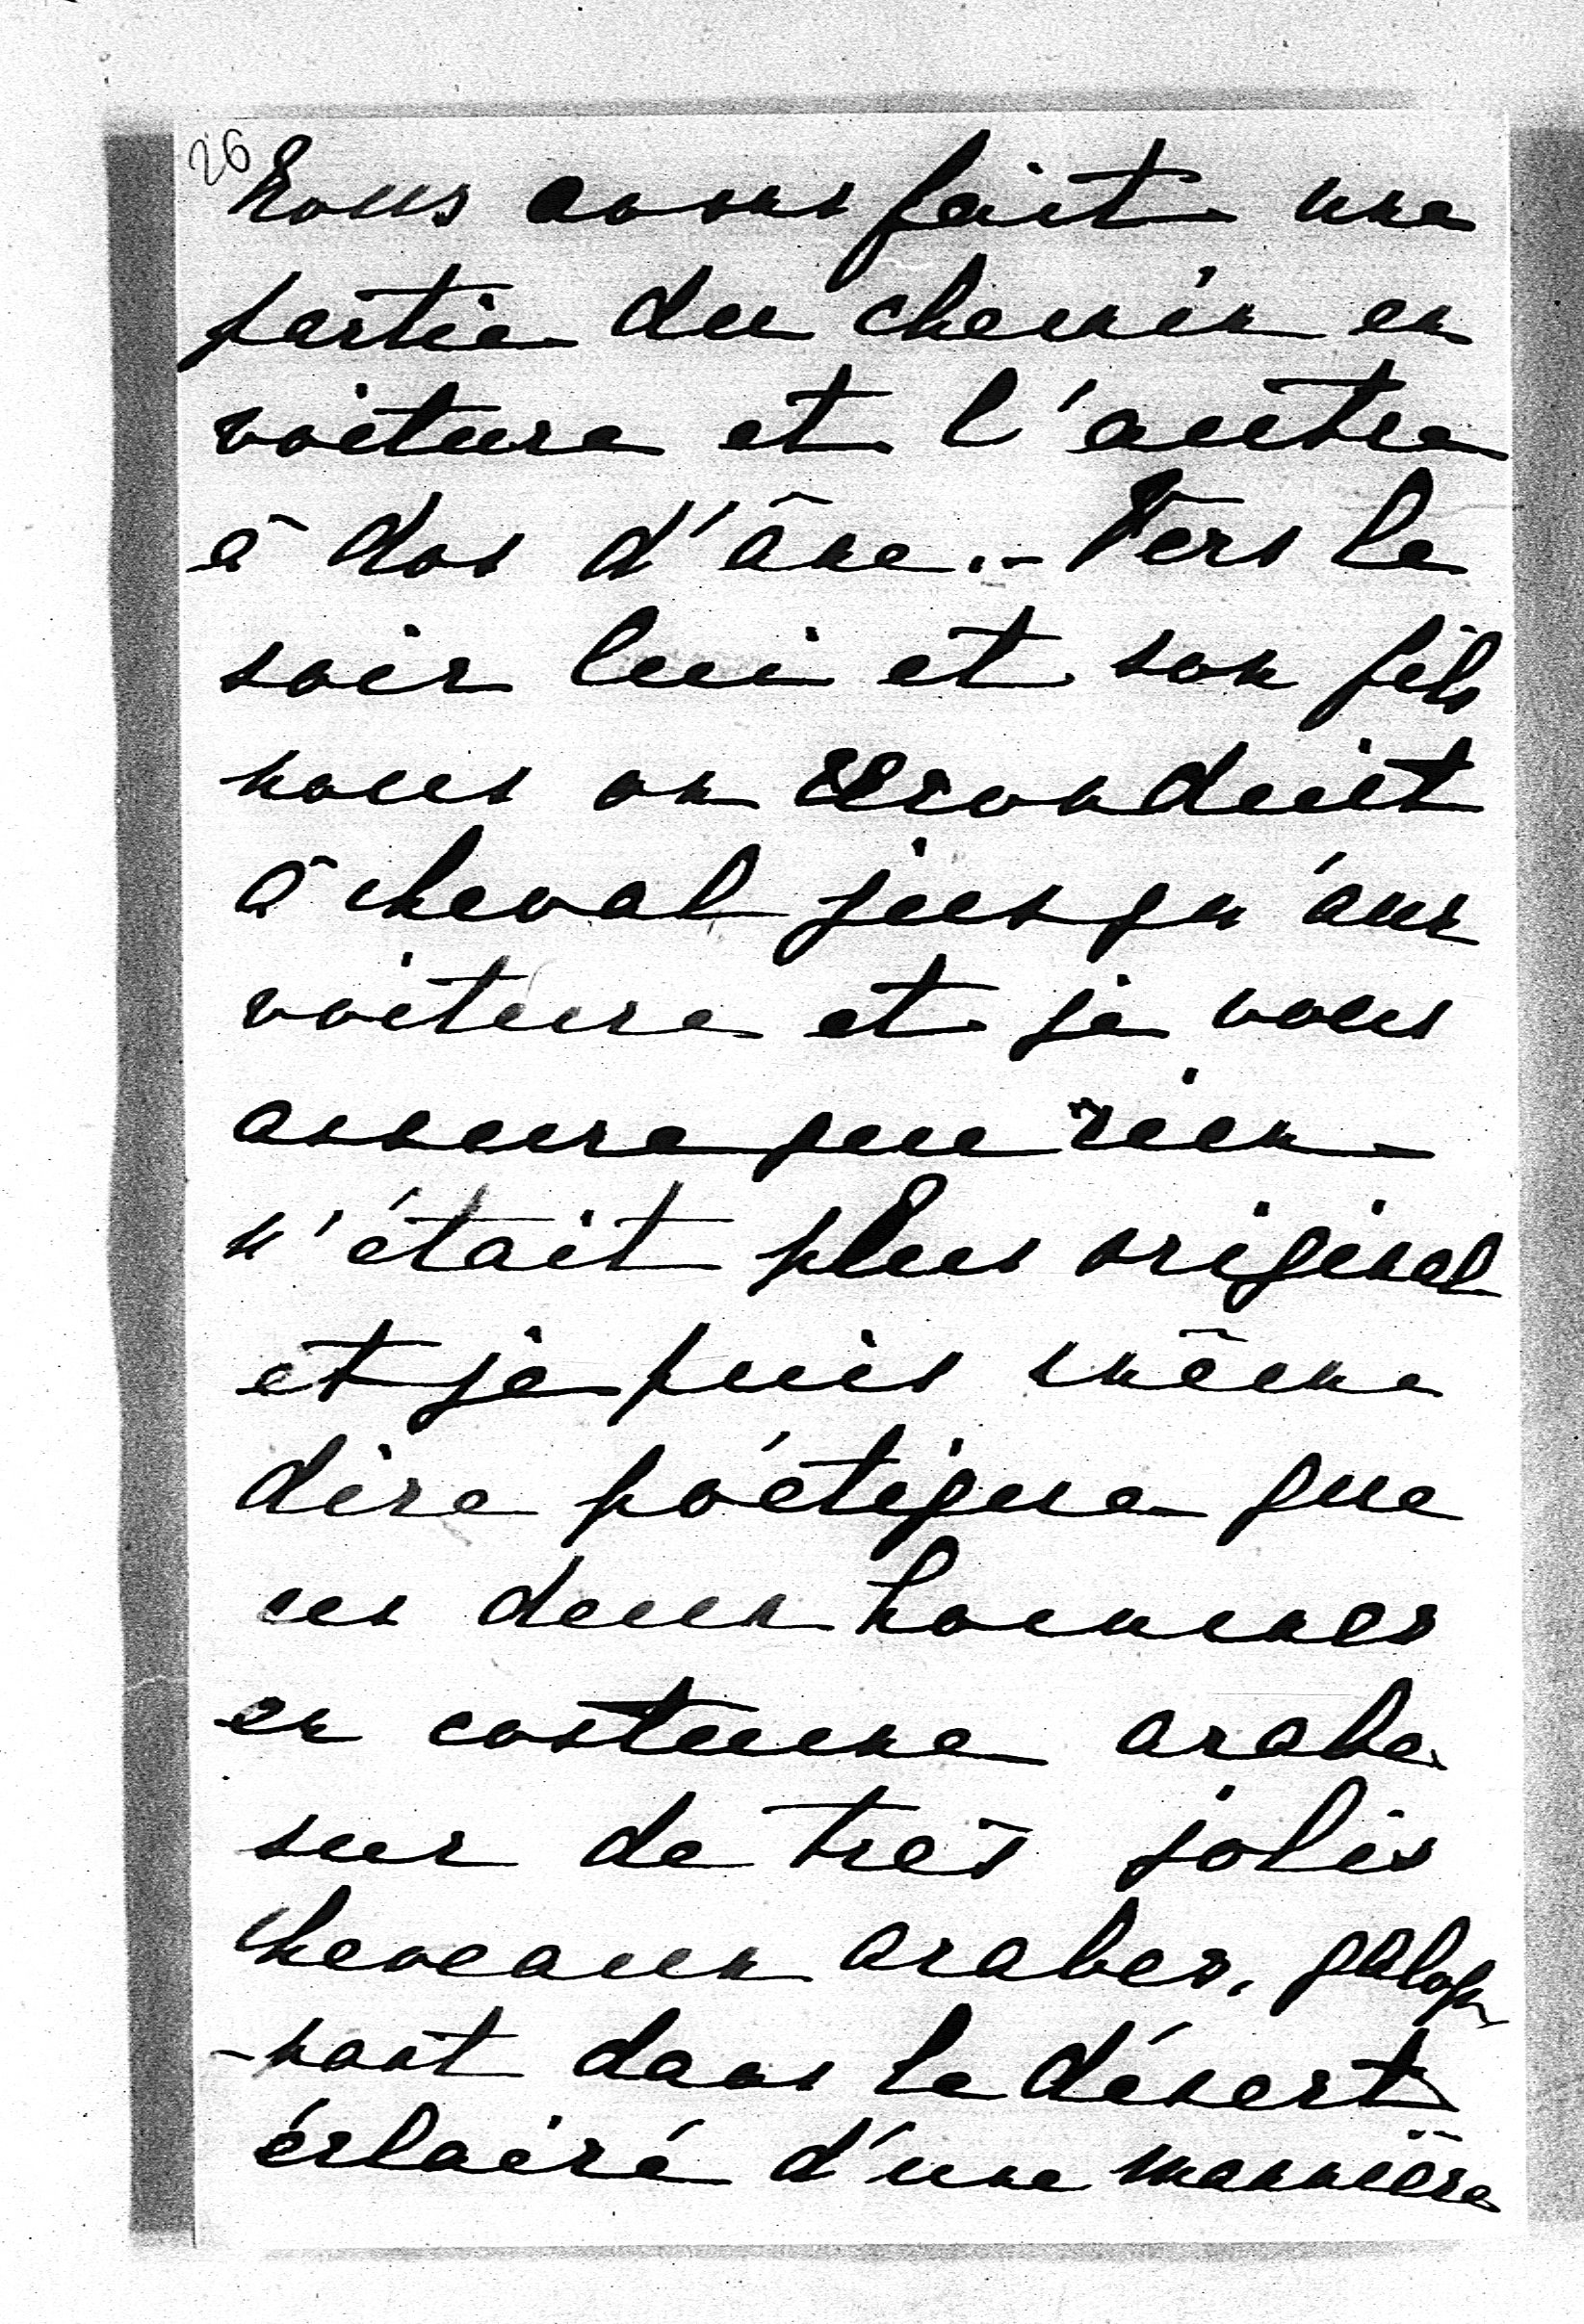 26
Nous avons fait une
partie du chemin en
voiture et l'autre
à dos d'âne.- Vers le
soir lui et son fils
nous on reconduit
à cheval jusqu'aux
voiture et je vous
assure que rien
n'était plus original
et je puis même
dire poétique que
ces deux hommes
en costume arabe
sur de très jolis
cheveaux arabes, galop
-pant dans le désert
éclairé d'une mannière